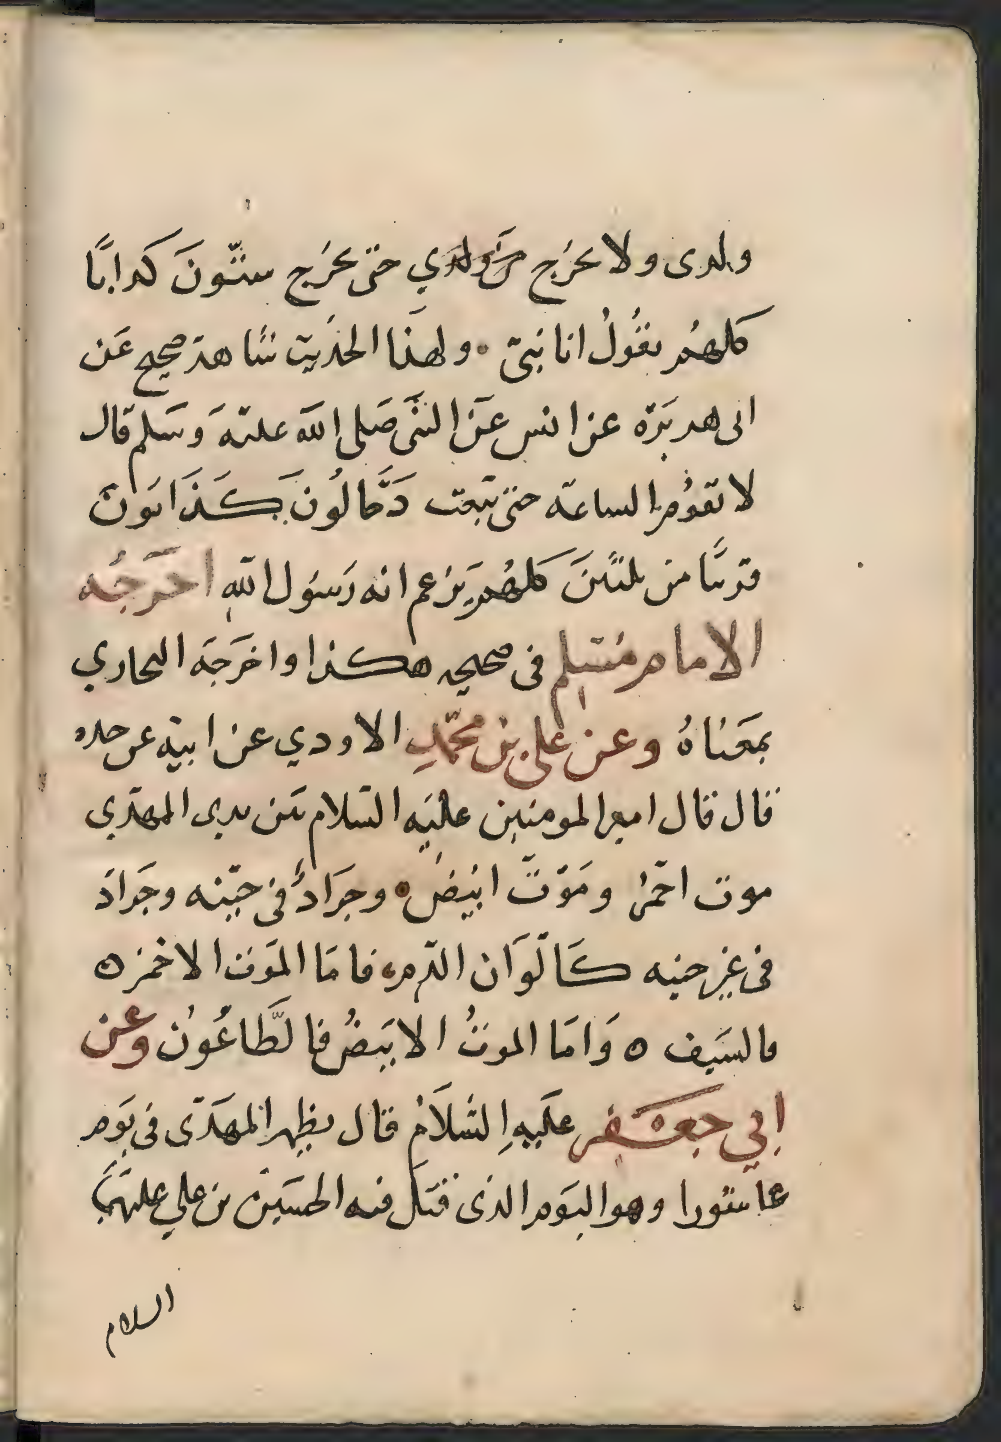 ولدى ولا يخرج من ولدي حتى يخرج ستّونَ كدابًا
كلهُم يقُولُ انا نبيّ ولهذا الحديث شاهد صحيح عَن
ابى هريرَة عن انس عَن النبَّى صَلى الله عليهَ وسَلم قال
لا تقوُم الساعة حتىّ تبعث دَجَّالُون كَذَابَون
قريبًا من ثلثينَ كلهُم يَزعم انه رَسَول الله اخرَجُه
الامام مُسَلم فى صحيحه هكذا واخرَجَه البخاري
بمَعَناهُ وعن على بن محمّدِ الاودي عن ابيه عن جده
قال قال امير المومنين عليَهِ السَلام بَين يدى المهدَى
موت احمرُ ومَوت ابيَض وجرَادٌ فى حيّنه وجَرادَ
فى غير حينه كَالَوَان الدّم فامَا المَوَت الاحمر ٥
فالسَيف ٥ وَامَا الموتُ الابيَضُ فالطَّاعُونُ وعن
ابي جَعفر عليَهِ السَلامُ قال يظهر المهدَى فى يَوم
عاشورا وهو اليَوم الذى قتلَ فيه الحسَينُ بن علي عليهمَا
السلام